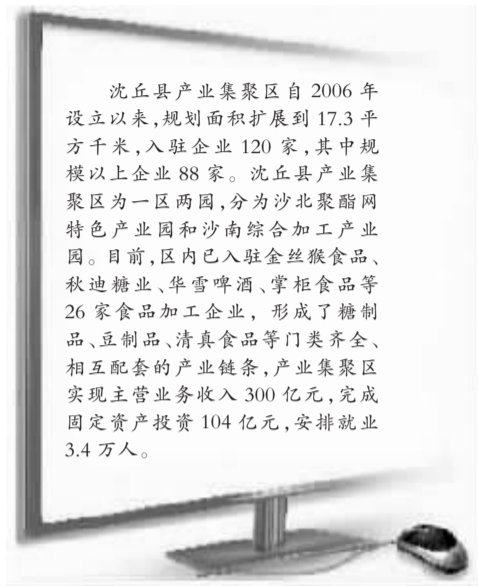 沈丘县产业集聚区自 2006 年
设立以来,规划面积扩展到 17.3 平
方千米,入驻企业 120 家,其中规
模以上企业 88 家。沈丘县产业集
聚区为一区两园,分为沙北聚酯网
特色产业园和沙南综合加工产业
园。目前,区内已入驻金丝猴食品、
秋迪糖业、华雪啤酒、掌柜食品等
26 家食品加工企业, 形成了糖制
品、豆制品、清真食品等门类齐全、
相互配套的产业链条,产业集聚区
实现主营业务收入 300 亿元,完成
固定资产投资 104 亿元,安排就业
3.4 万人。